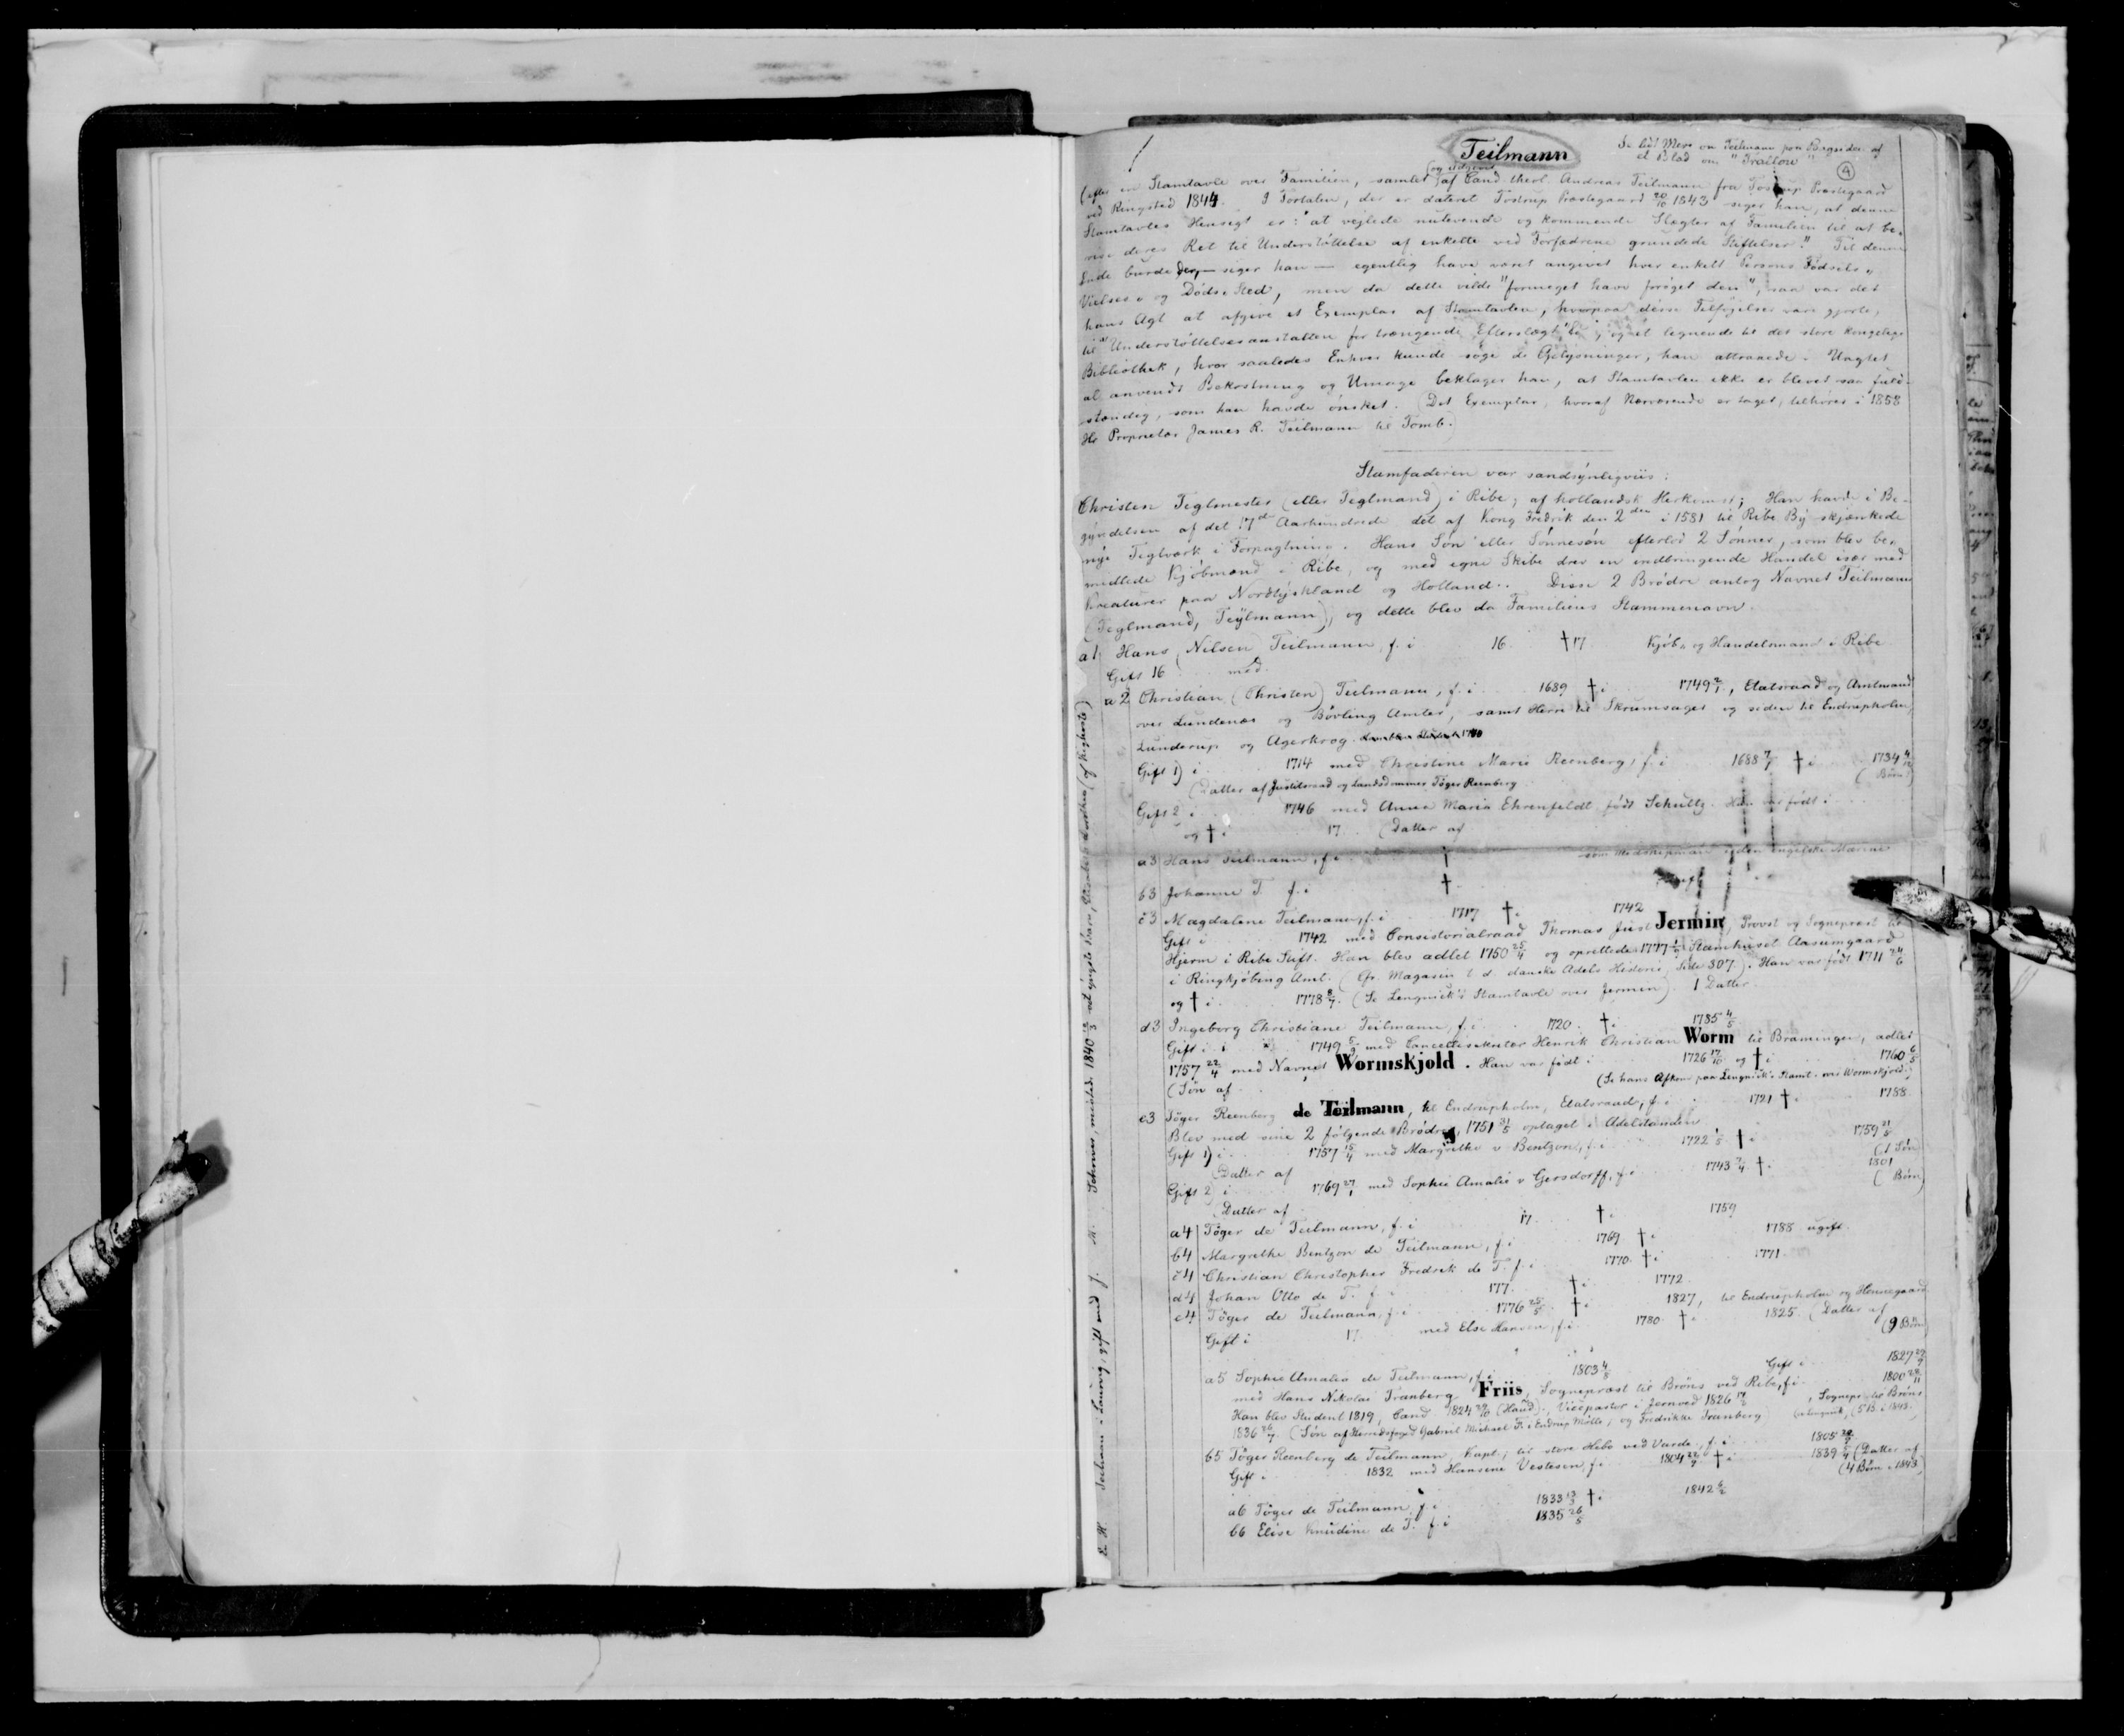 Teilmann
Se lidt Mere om Teilmann paa Bagsiden af
et Blad om "Grailow"
4
(efter en Stamtavle over Familien, samlet (og udgivet) af Cand. theol. Andreas Teilmann fra Tostrup Præstegaard
ved Ringsted 1844. I Fortalen, der er dateret Tostrup Præstegaard 20/10 1843 siger han, at denne
Stamtavles Hensigt er: "at vejlede nulevende og kommende Slægter af Familien til at be-
vise deres Ret til Understøttelse af enkelte ved Forfædrene grundede Stiftelser." Til denne
Ende burde der, — siger han — egentlig have været angivet hver enkelt Persons Fødsels-
Vielses- og Døds-Sted, men da dette vilde "formeget have forøget den", saa var det
hans Agt at afgive et Exemplar af Stamtavlen, hvorpaa disse Tilføjelser vare gjorte,
til "Understøttelsesanstalten for trængende Efterslægt", og et lignende til det store kongelige
Bibliothek, hvor saaledes Enhver kunde søge de Oplysninger, han attraaede. Uagtet
al anvendt Bekostning og Umage beklager han, at Stamtavlen ikke er blevet saa fuld-
stændig, som han havde ønsket. (Det Exemplar, hvoraf Nærværende er taget, tilhører i 1858
Hr Proprietær James R. Teilmann til Tomb.)
Stamfaderen var sandsynligviis:
Christen Teglmester (eller Teglmand) i Ribe, af hollandsk Herkomst; Han havde i Be-
gyndelsen af det 17de Aarhundrede det af Kong Fredrik den 2den i 1581 til Ribe By skjænkede
nye Teglværk i Forpagtning. Hans Søn eller Sønnesøn efterlod 2 Sønner, som blev be-
midlede Kjøbmænd i Ribe, og med egne Skibe drev en indbringende Handel især med
Kreaturer paa Nordtyskland og Holland. Disse 2 Brødre antog Navnet Teilmann
(Teglmand, Teylmann), og dette blev da Familiens Stammenavn.
a1 Hans (Nilsen) Teilmann, f. i 16 † 17 Kjøb- og Handelsmand i Ribe
Gift 16 med
a2 Christian (Christen) Teilmann, f. i 1689 † i 1749 2/1, Etatsraad og Amtmand
over Lundenæs og Bøvling Amter, samt Herre til Skrumsager og siden til Endrupholm,
Lunderup og Agerkrog.
Gift 1) i 1714 med Christine Marie Reenberg, f. i 1688 7/7 † i 1734 4/12
(Datter af Justitsraad og Landsdommer Tøger Reenberg ( Børn)
Gift 2 i 1746 med Anna Maria Ehrenfeldt født Schultz. Hun var født i
og † i 17 (Datter af
a3 Hans Teilmann, f. i † som Midshipman i den engelske Marine
b3 Johanne T. f. i †
c3 Magdalene Teilmann, f. i 1717 † i 1742
Gift i 1742 med Consistorialraad Thomas Just Jermin, Provst og Sognepræst til
Hjerm i Ribe Stift. Han blev adlet 1750 25/4 og oprettede 1777 1/9 Stamhuset Aasumgaard
i Ringkjøbing Amt. (Gr. Magasin t. d. danske Adels Historie, Side 307). Han var født 1711 24/6
og † i 1778 8/7. (Se Lengnick's Stamtavle over Jermin). 1 Datter.
d3 Ingeborg Christiane Teilmann, f. i 1720. † i 1785 4/5
Gift i 1749 5/9 med Cancellisekretær Henrik Christian Worm til Bramminge, adlet
1757 22/4 med Navnet Wormskjold. Han var født i 1726 17/10 og † i 1760 6/5
(Søn af (Se hans Afkom paa Lengnick's Stamt. over Wormskjold.)
e3 Tøger Reenberg de Teilmann, til Endrupholm, Etatsraad, f. i 1721 † i 1788.
Blev med sine 2 følgende Brødre, 1751 31/5 optaget i Adelstanden
Gift 1) i 1757 15/4 med Margrethe v Bentzon, f. i 1722 1/5 † i 1759 21/5
(Datter af (1 Søn
Gift 2) i 1769 27/1 med Sophie Amalie v Gersdorff, f. i 1743 7/4 † i 1801
(Datter af ( Børn)
a4 Tøger de Teilmann, f. i 17 † i 1759
b4 Margrethe Bentzon de Teilmann, f. i 1769 † i 1788 ugift.
c4 Christian Christopher Fredrik de T. f. i 1770 † i 1771
d4 Johan Otto de T. f. i 177 † i 1772
e4 Tøger de Teilmann, f. i 1776 25/5 † i 1827, til Endrupholm og Hennegaard.
Gift i 17 med Else Hansen, f. i 1780 † i 1825. (Datter af
(9 Børn)
a5 Sophie Amalie de Teilmann, f. i 1803 4/8 Gift i 1827
med Hans Nikolai Tranberg Friis, Sognepræst til Brøns ved Ribe, f. i 1800
Han blev Student 1819, Cand. 1824 (Haud), Vicepastor i Jernved 1826, Sognepr. til Brøns
1836. (Søn af Herredsfoged Gabriel Michael Fr. i Endrup Mølle, og Fredrikke Tranberg) (5 B. i 1843.
b5 Tøger Reenberg de Teilmann, Kapt., til store Hebo ved Varde, f. i 1805
Gift i 1832 med Hansine Vestesen, f. i 1804 † i 1839 (Datter af
(4 Børn i 1843)
a6 Tøger de Teilmann, f. i 1833 13/3 † i 1842
b6 Elise Knudine de T. f. i 1835 26/5